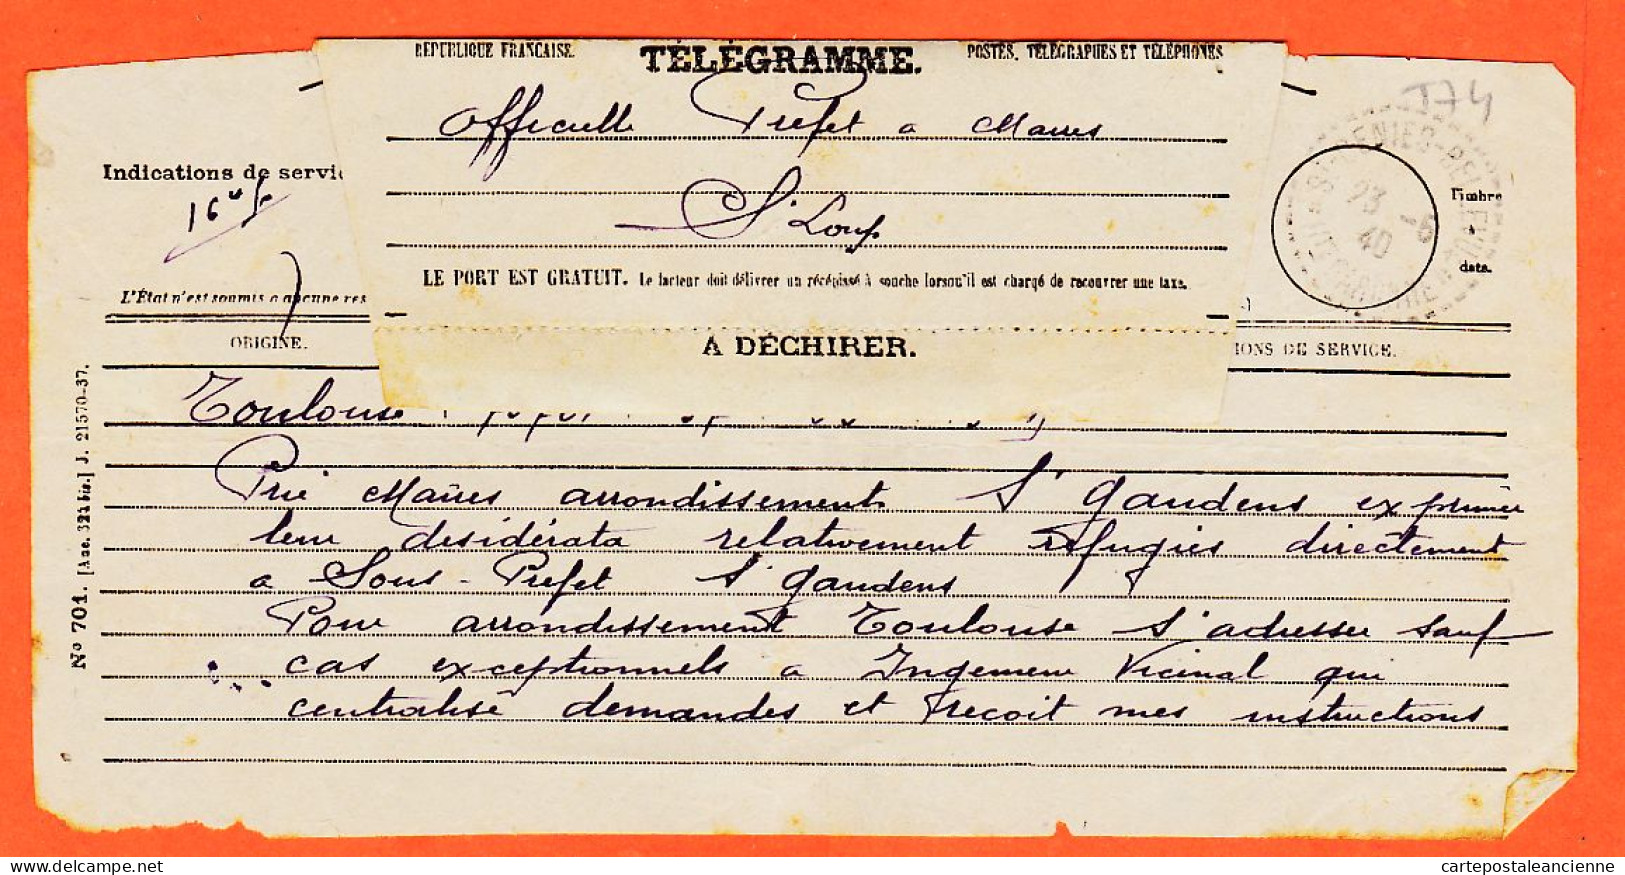 RÉPUBLIQUE FRANÇAISE. TÉLÉGRAMME. POSTES, TÉLÉGRAPHES ET TÉLÉPHONES
Officielle Préfet a Maires
St Loup
LE PORT EST GRATUIT. Le facteur doit délivrer un récépissé à souche lorsqu'il est chargé de recouvrer une taxe.
A DÉCHIRER.
T74
Indications de servic
L'État n'est soumis a aucune res
Timbre
à
date.
23 -5
40
ORIGINE.
IONS DE SERVICE.
No 701. [Anc. 324 bis.] J. 21570-37.
Toulouse
Prie Maires arrondissements St Gaudens exprimer
leur desidérata relativement réfugiés directement
a Sous-Préfet St Gaudens
Pour arrondissement Toulouse s'adresser sauf
cas exceptionnels a Ingenieur Vicinal qui
centralise demandes et reçoit mes instructions
cartepostaleancienne